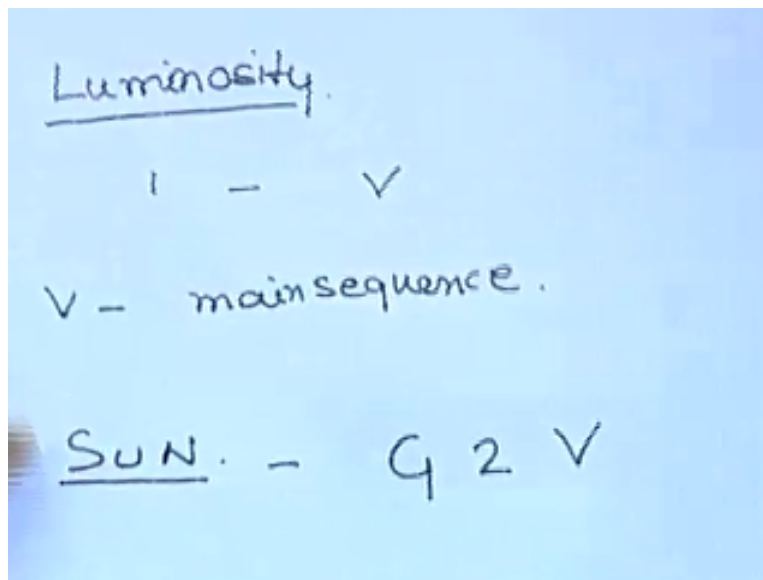 Luminosity.
I - V
V - mainsequence.
SUN. - G 2 V